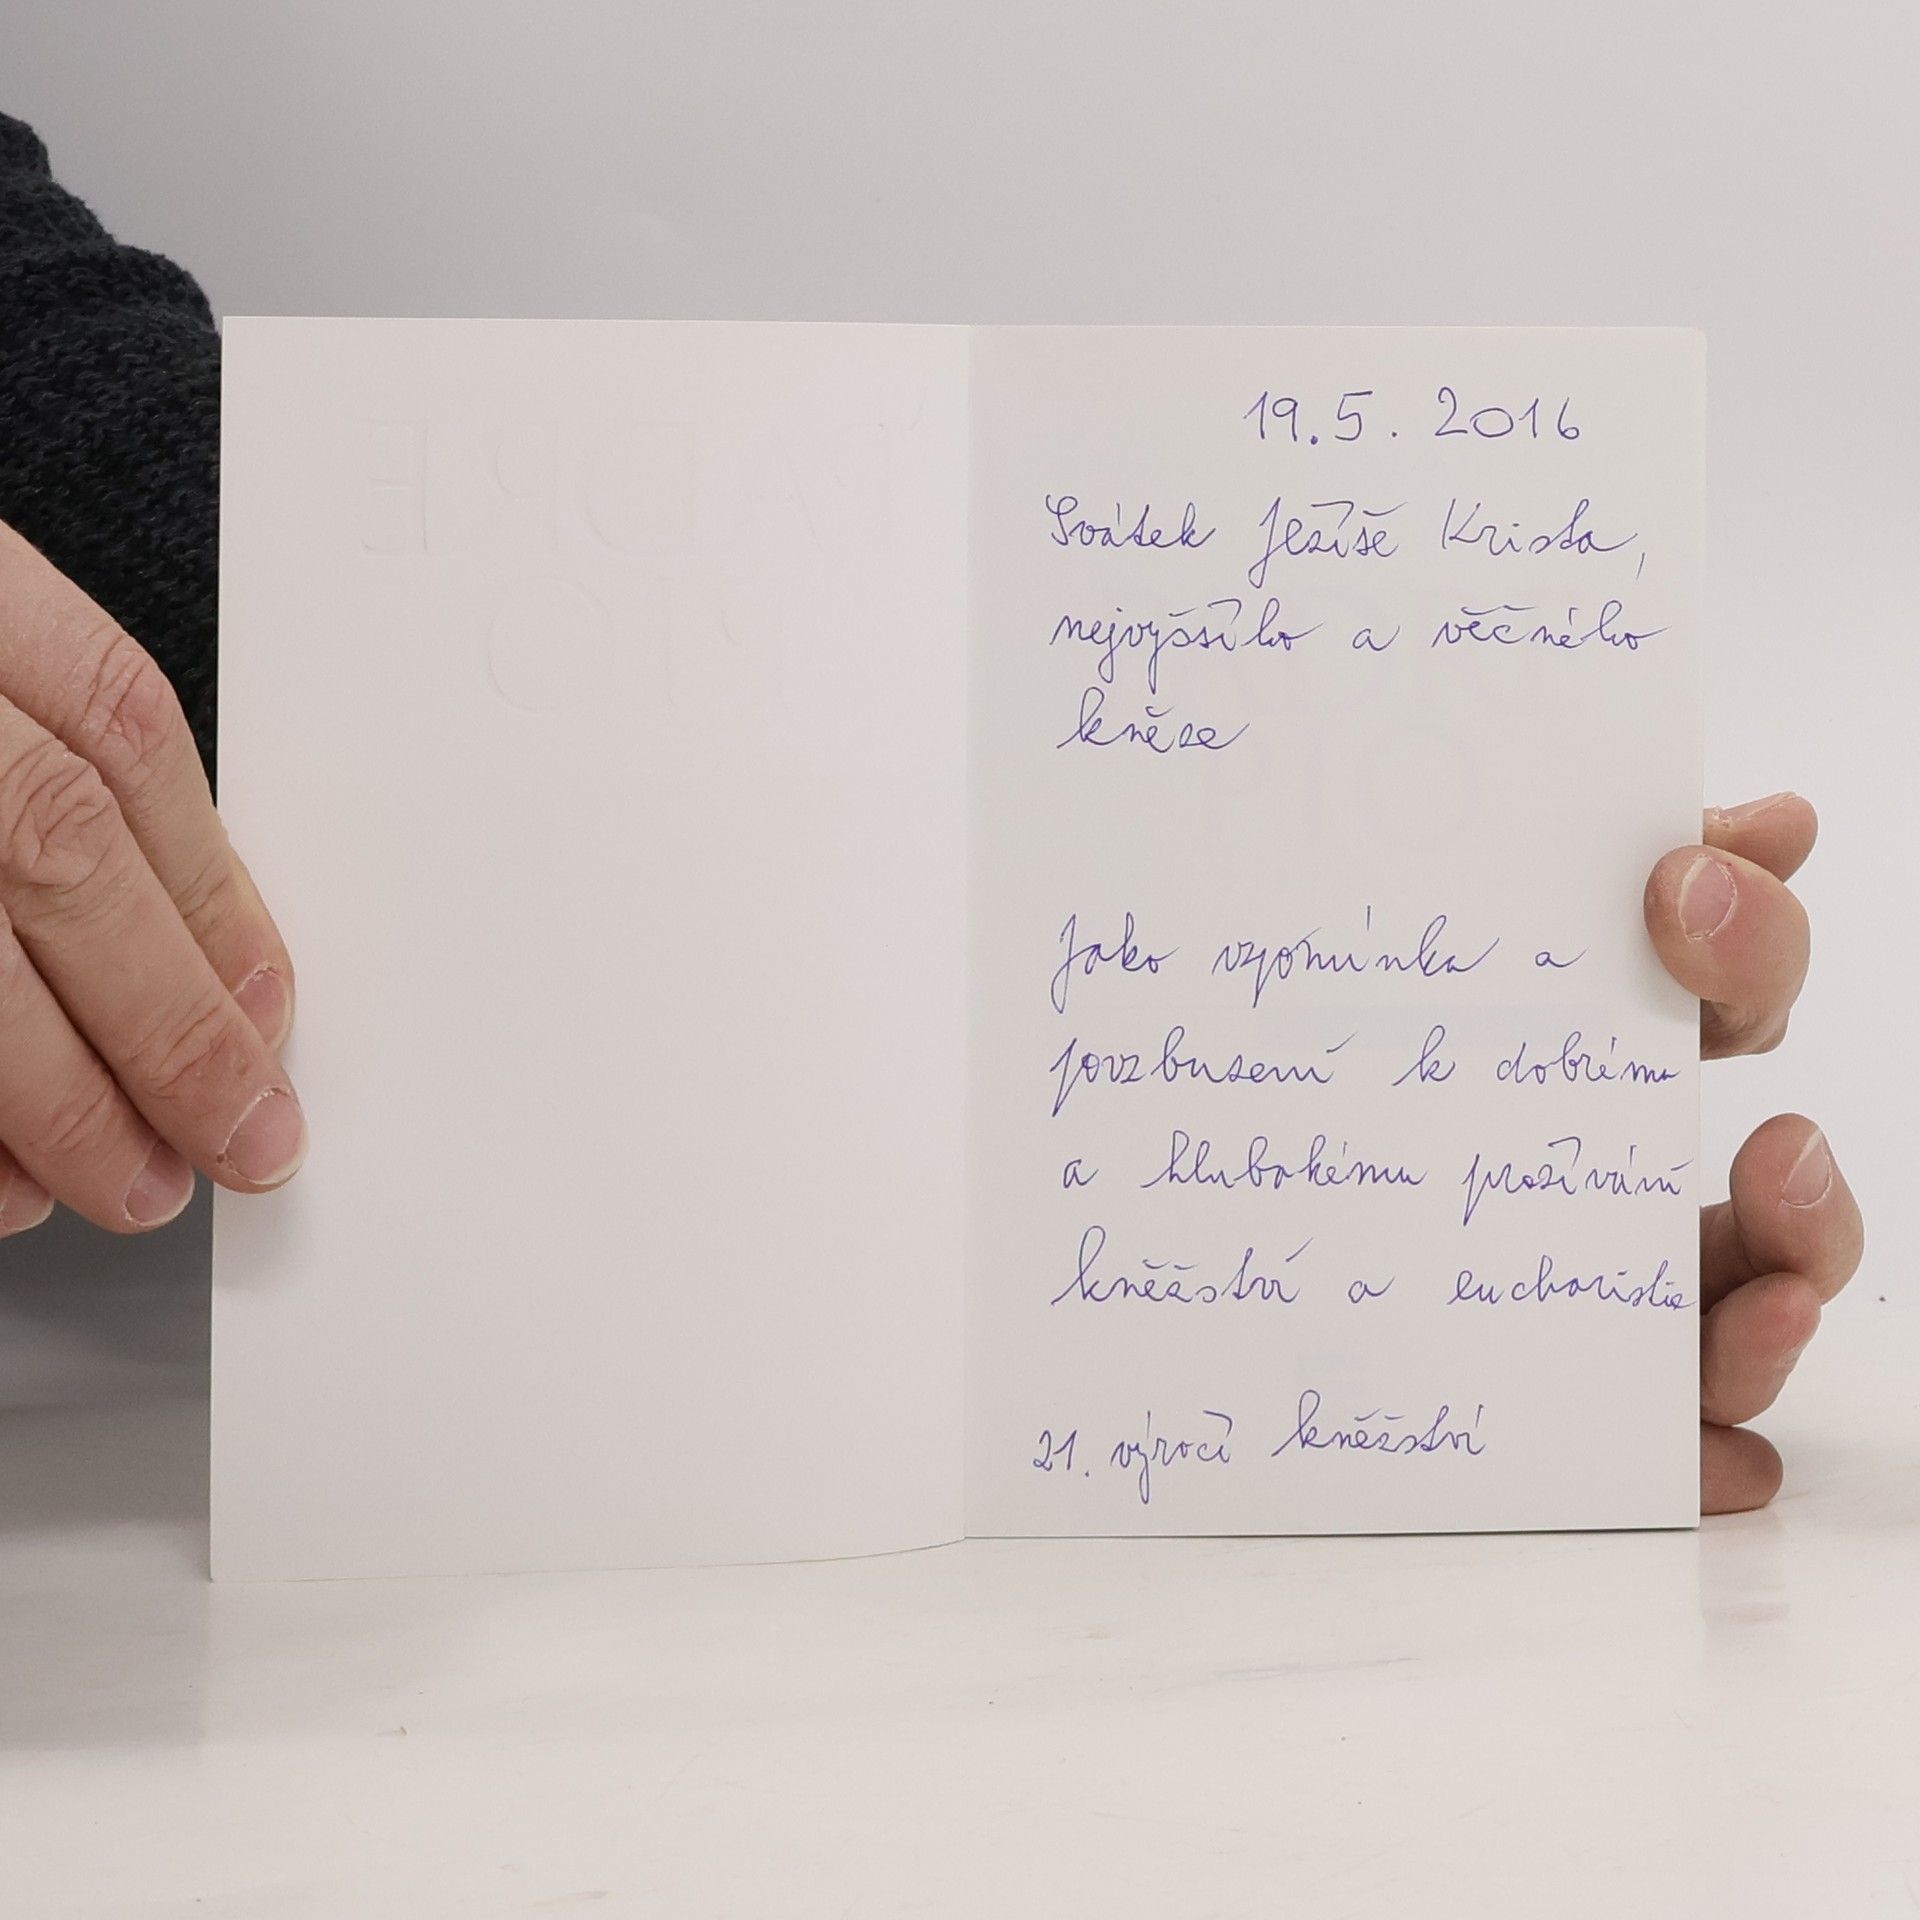 19.5. 2016
Svátek Ježíše Krista,
nejvyššího a věčného
kněze
Jako vzpomínka a
povzbuzení k dobrému
a hlubokému prožívání
kněžství a eucharistie
21. výročí kněžství